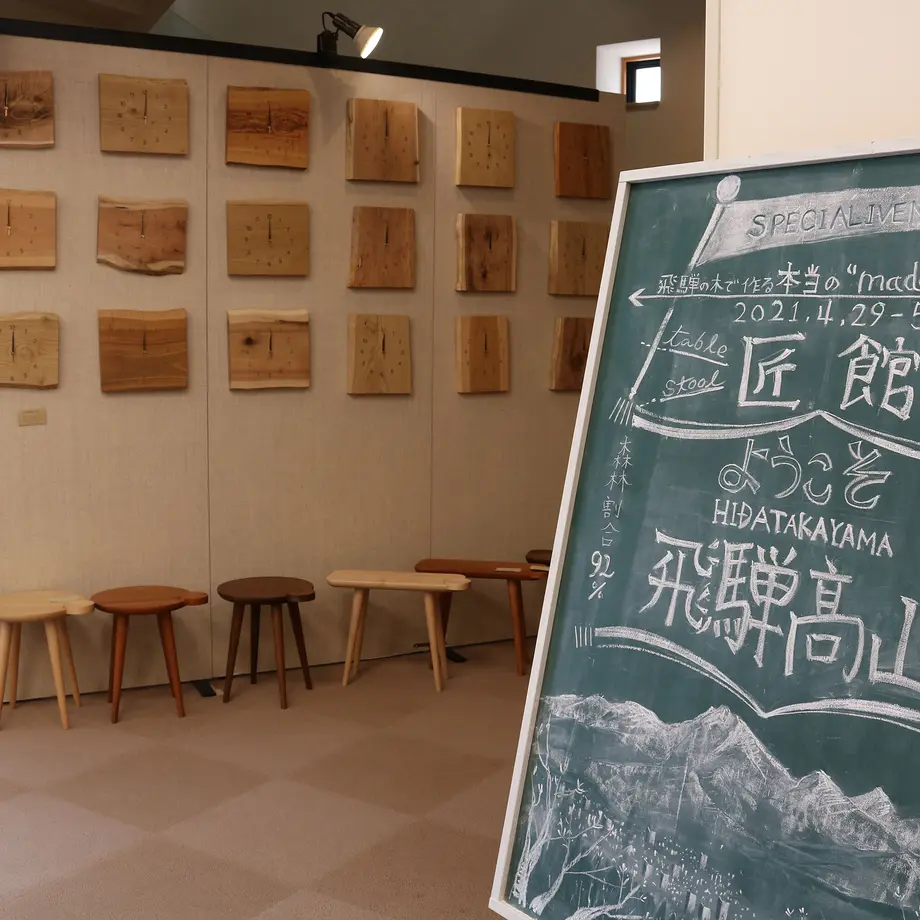 SPECIALIVE
飛騨の木で作る本当の"mad
2021.4.29-5
table
stool
匠館
ようこそ
HIDATAKAYAMA
飛騨高山
森林割合92%